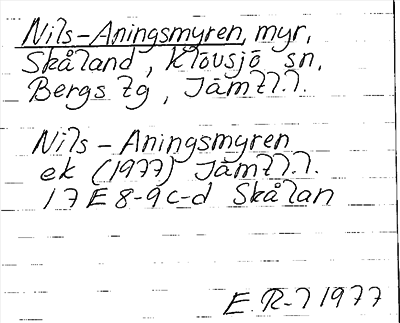 Nils-Aningsmyren, myr,
Skåland, Klövsjö sn,
Bergs tg, Jämtl.l.
Nils-Aningsmyren
ek (1977) Jämtl.l.
17E 8-9c-d Skålan
E.R-7 1977